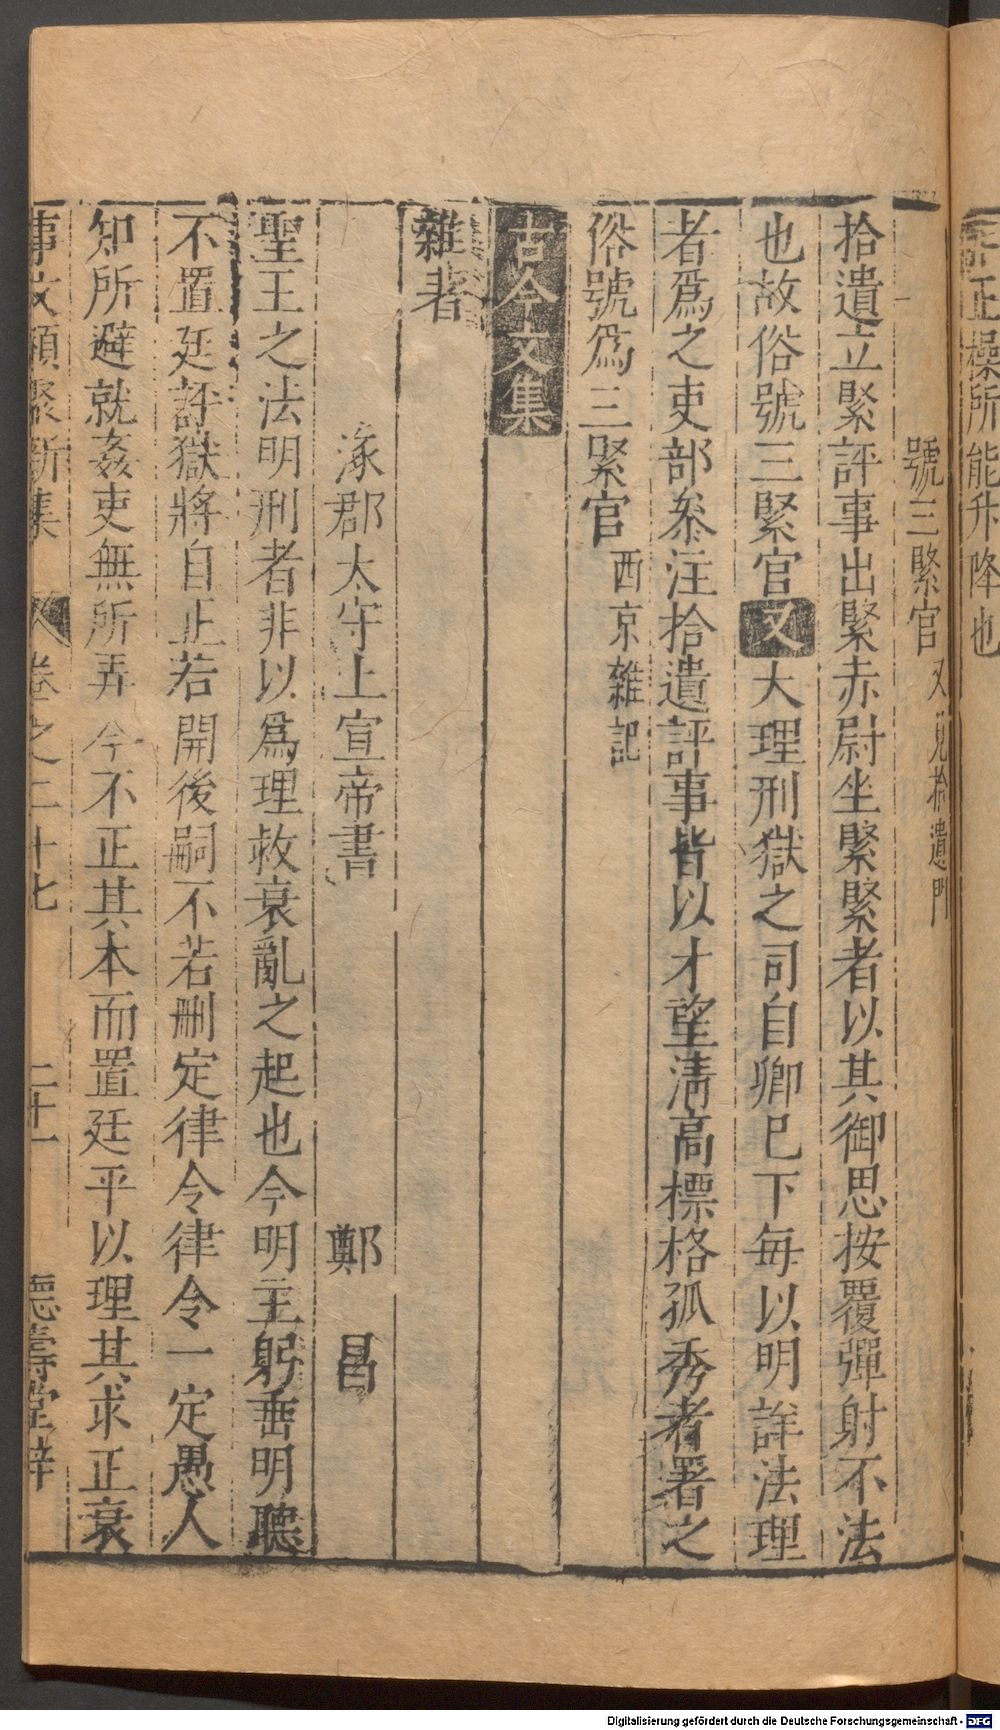 正操所能升降也
號三緊官又見拾遺門
拾遺立緊評事出緊赤尉坐緊緊者以其御思按覆彈射不法
也故俗號三緊官又大理刑獄之司自卿巳下每以明詳法理
者爲之吏部叅注拾遺評事皆以才望清高標格孤秀者署之
俗號爲三緊官西京雜記
古今文集
雜著
涿郡太守上宣帝書 鄭昌
聖王之法明刑者非以爲理救衰亂之起也今明主躬垂明聽
不置廷評獄將自正若開後嗣不若刪定律令律令一定愚人
知所避就姦吏無所弄今不正其本而置廷平以理其求正衰
事文類聚新集 卷之二十七 二十一 德壽堂梓
Digitalisierung gefördert durch die Deutsche Forschungsgemeinschaft - DFG